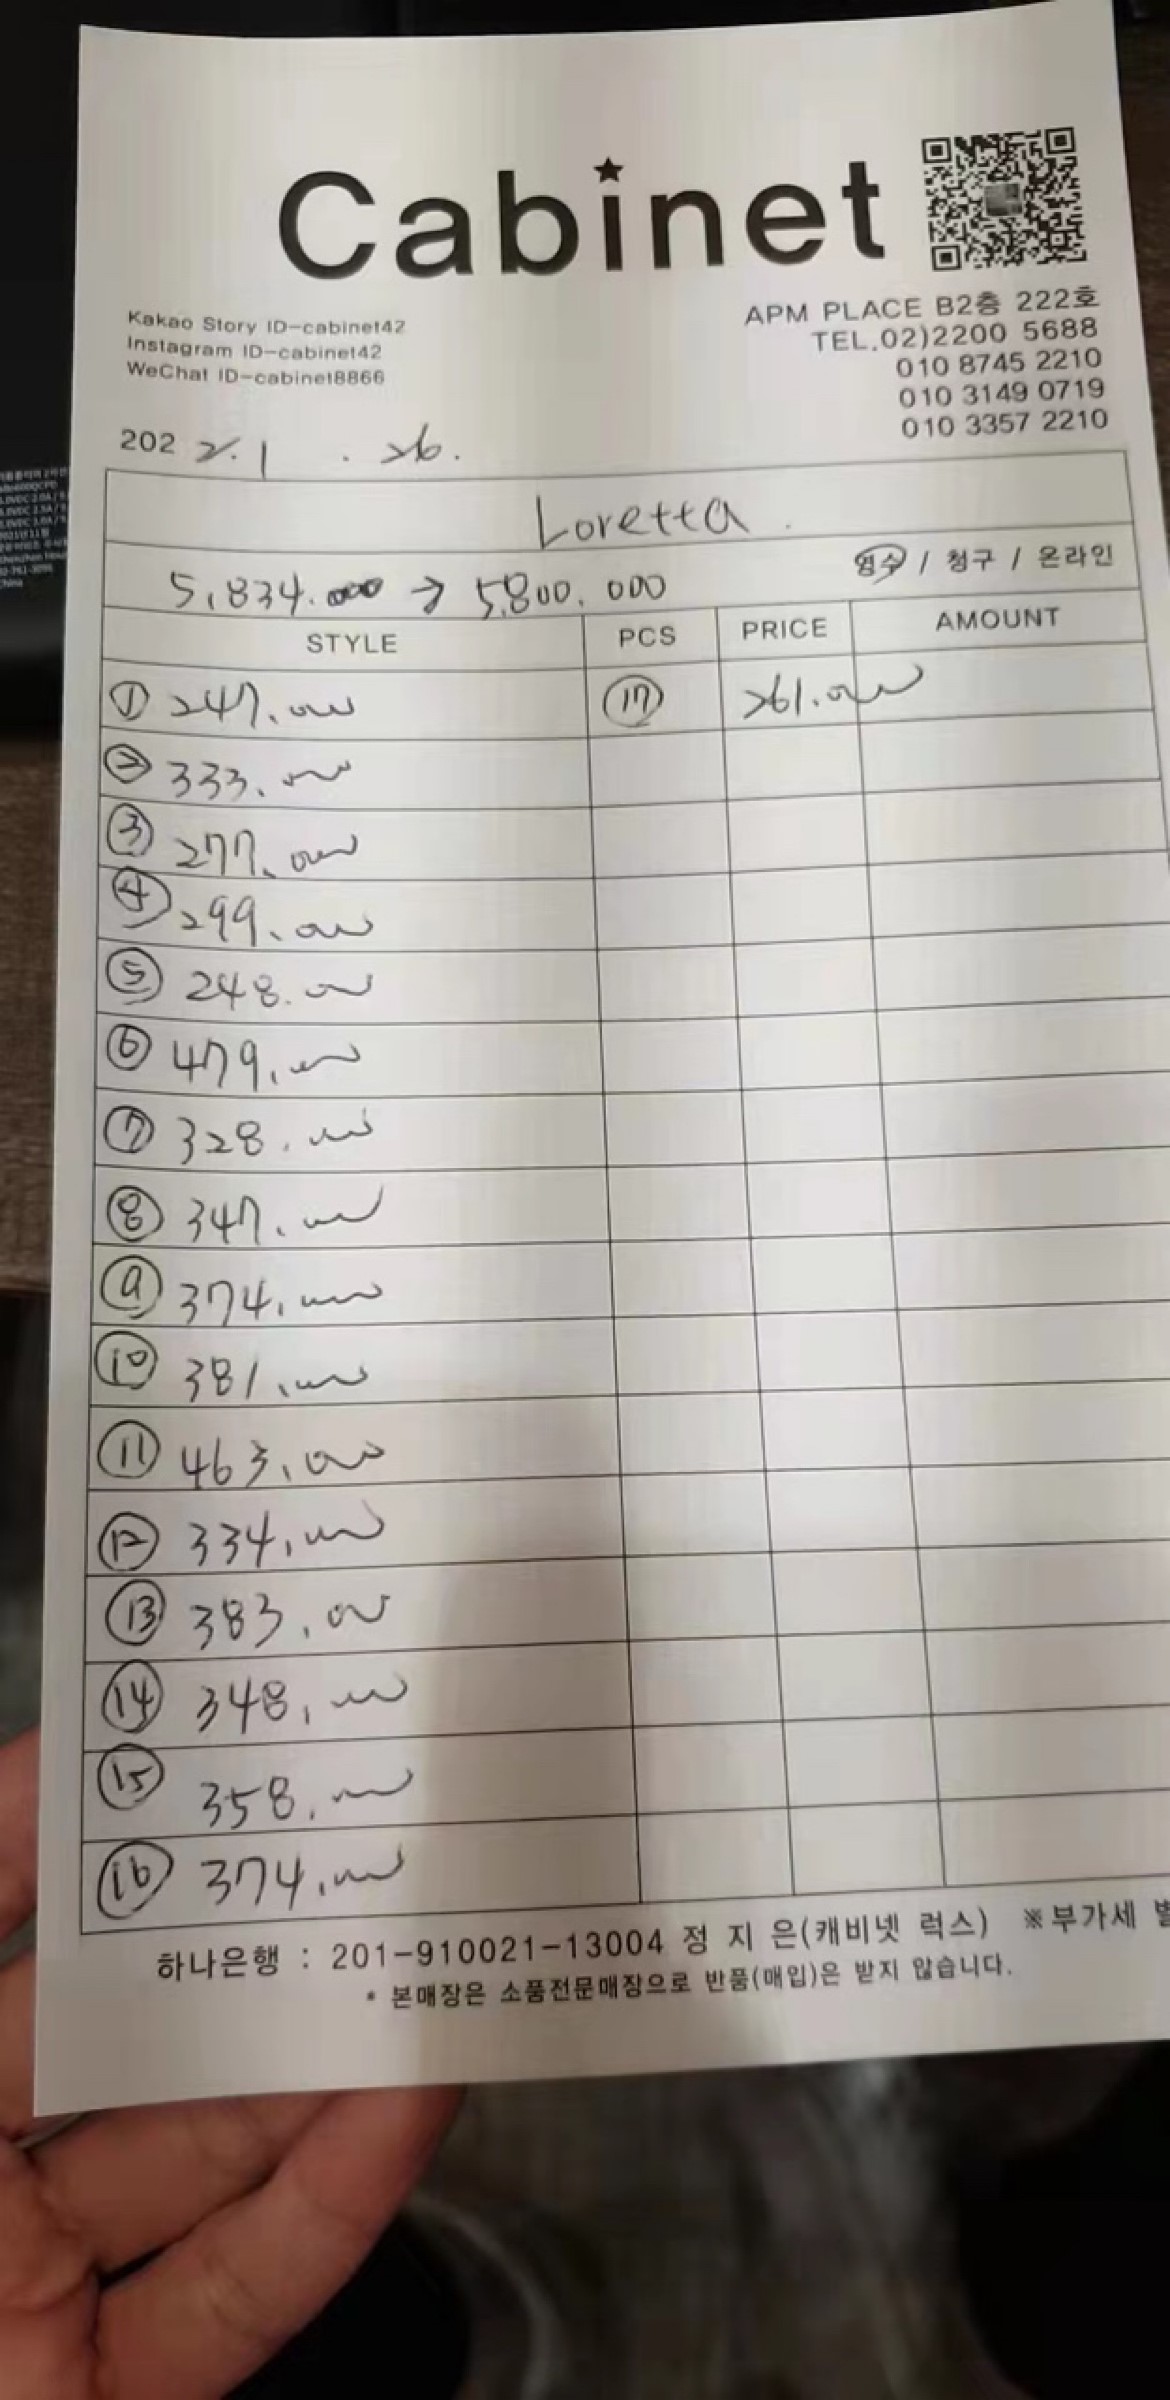 Cabinet
Kakao Story ID-cabinet42
Instagram ID-cabinet42
WeChat ID-cabinet8866
APM PLACE B2층 222호
TEL.02)2200 5688
010 8745 2210
010 3149 0719
010 3357 2210
2022.1.26.
Loretta.
5,834.000 → 5,800,000
영수 / 청구 / 온라인
STYLE PCS PRICE AMOUNT
① 247.000 ⑰ 261.000
② 333.000
③ 277.000
④ 299.000
⑤ 248.000
⑥ 479.000
⑦ 328.000
⑧ 347.000
⑨ 374.000
⑩ 381.000
⑪ 463.000
⑫ 334.000
⑬ 383.000
⑭ 348.000
⑮ 358.000
⑯ 374.000
하나은행 : 201-910021-13004 정 지 은(캐비넷 럭스) ※부가세 별
* 본매장은 소품전문매장으로 반품(매입)은 받지 않습니다.